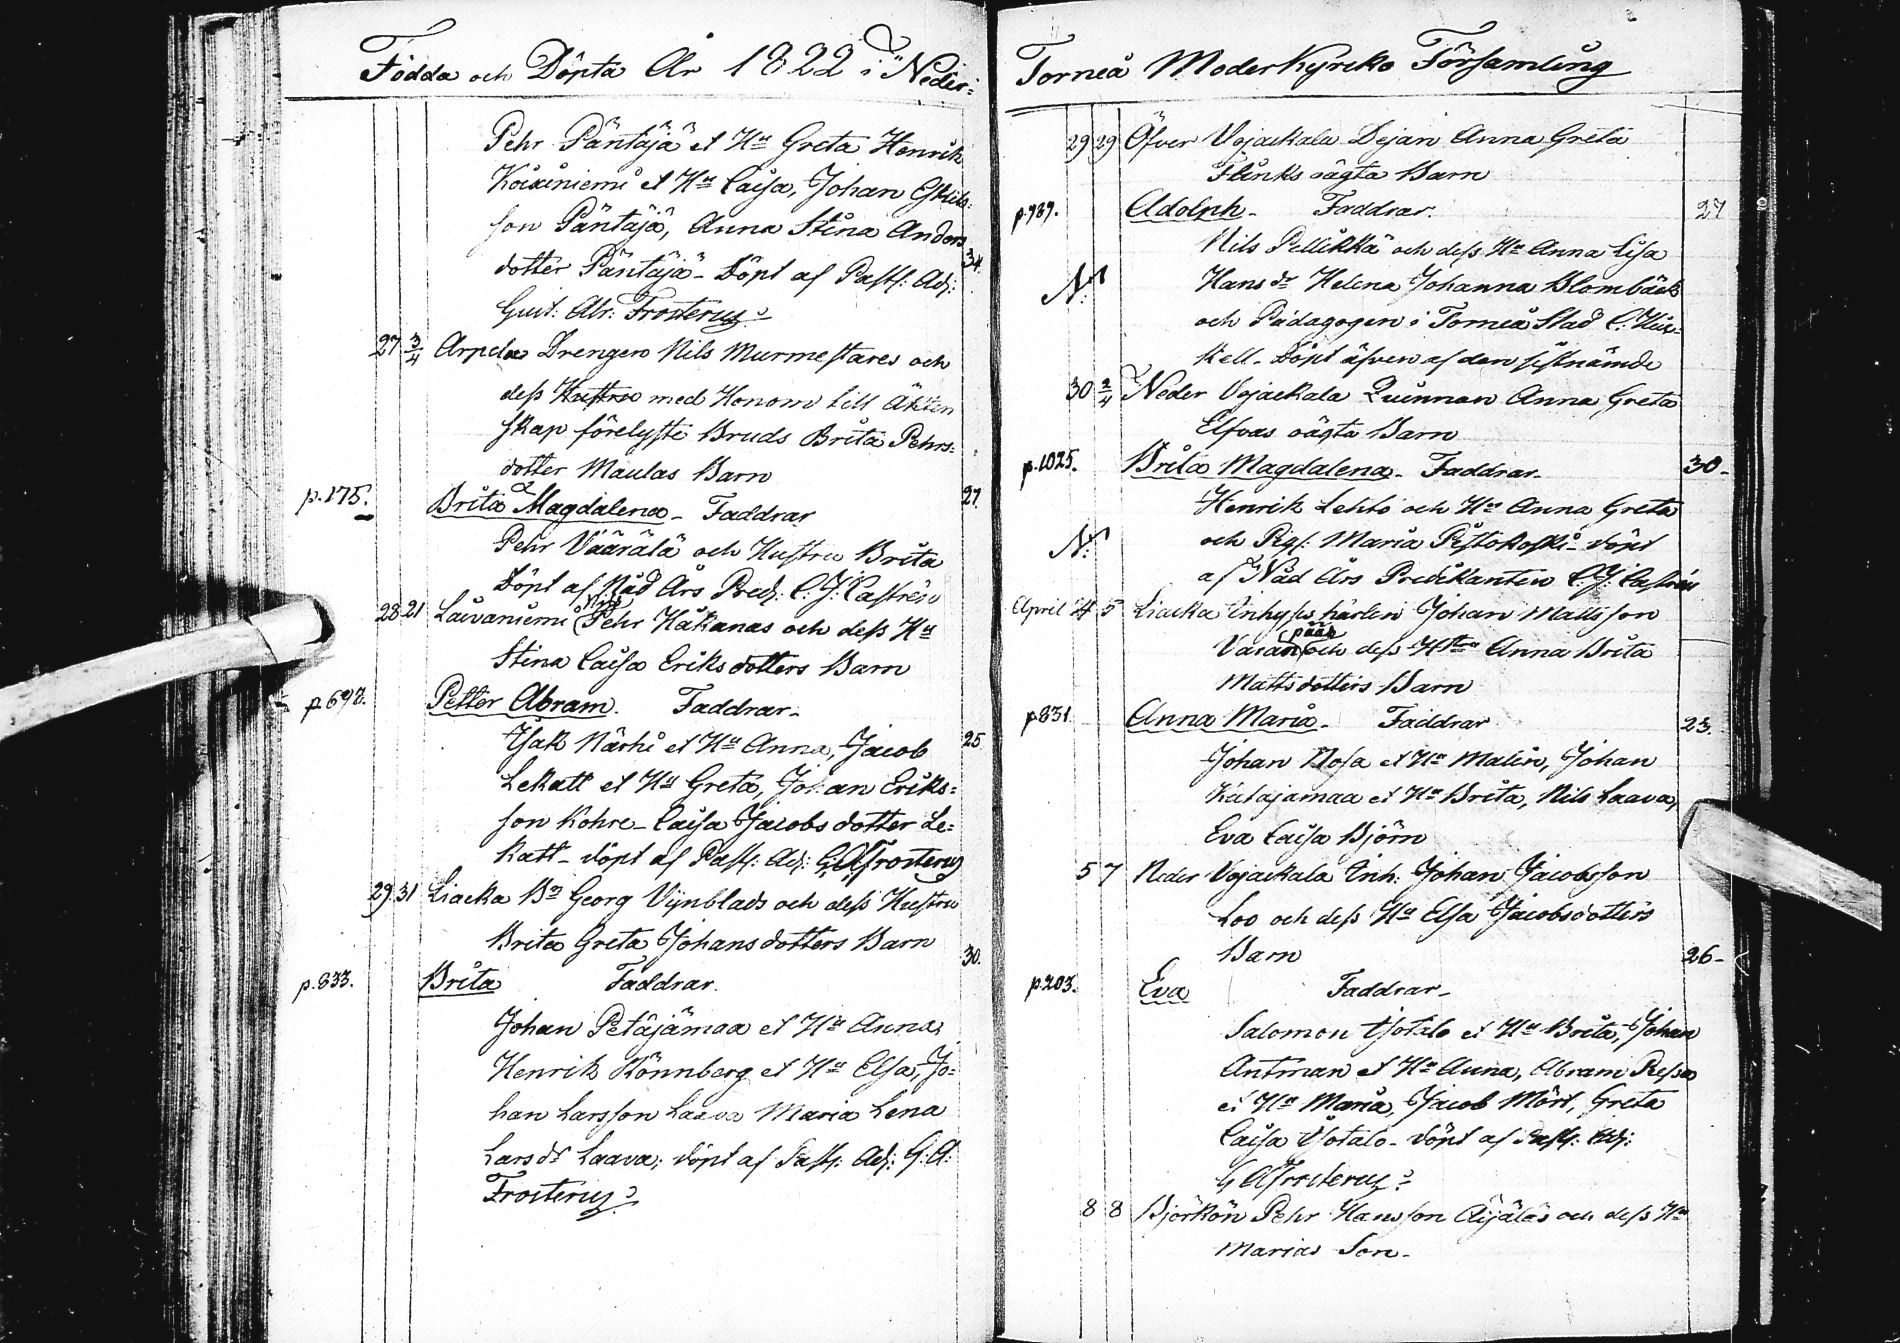 Födda och Döpta År 1822 i Neder-
Pehr Päntäjä et Hu Greta Henrik
Koiviniemi et Hu Caisa, Johan Eskils-
son Päntäjä, Anna Stina Anders
dotter Päntäjä - Döpt af Past: Adj: 34.
Gust: Abr: Frosterus
27 3/4 Arpela Drengen Nils Murmestares och
dess Hustru med Honom till Äkten
skap förelyste Bruds Brita Pehrs-
dotter Maulas Barn
p.175. Brita Magdalena - Faddrar 27.
Pehr Väärälä och Hustru Brita
Döpt af Nåd Års Pred: C.J. Castrén
28 21 Laivaniemi Pehr Håkanas och dess Hu
Stina Caisa Eriksdotters Barn
p.698. Petter Abram. Faddrar -
Isak Närhi et Hu Anna, Jacob 25
Lekatt et Hu Greta, Johan Eriks-
son Kohre - Caisa Jacobsdotter Le-
katt - döpt af Past: Adj: G:A:Frosterus
29 31 Liacka Bn Georg Vynblads och dess Hustru
Brita Greta Johansdotters Barn 30.
p.833. Brita Faddrar.
Johan Petäjämaa et Hu Anna,
Henrik Rönnberg et Hu Elsa, Jo-
han Larsson Laava Maria Lena
Larsdr Laava; döpt af Past: Adj: G:A:
Frosterus
Torneå Moderkyrko Församling
29 29 Öfver Vojackala Dejan Anna Greta
Flinks oägta Barn
p.989. Adolph - Faddrar. 27
Nils Pellikka och dess Hu Anna Lisa
N: Hansdr Helena Johanna Blombäck
och Pädagogen i Torneå Stad C: Heic-
kell - Döpt äfven af den sistnämde
30 2/4 Neder Vojackala Quinnan Anna Greta
Elfvas oägta Barn
p.1025. Brita Magdalena - Faddrar - 30-
Henrik Lehto och Hu Anna Greta
N: och Pigs: Maria Pistokoski - döpt
af Nåd Års Predikanten C.J. Castrén
April 4 5 Liacka Inhyses karlen Johan Mattsson
Varan pää och dess Hu Anna Brita
Mattsdotters Barn
p831. Anna Maria - Faddrar 23.
Johan Nosa et Hu Malin, Johan
Katajamaa et Hu Brita, Nils Laava,
Eva Caisa Björn
5 7 Neder Vojackala Inh: Johan Jacobsson
Loo och dess Hu Elsa Jacobsdotters
Barn 26-
p.203. Eva Faddrar -
Salomon Isotalo et Hu Brita, Johan
Antman et Hu Anna, Abram
et Hu Maria, Jacob Mört, Greta
Caisa Isotalo - döpt af Past: Adj:
G A Frosterus
8 8 Björkön Pehr Hansson Äijäläs och dess Hu
Marias Son -